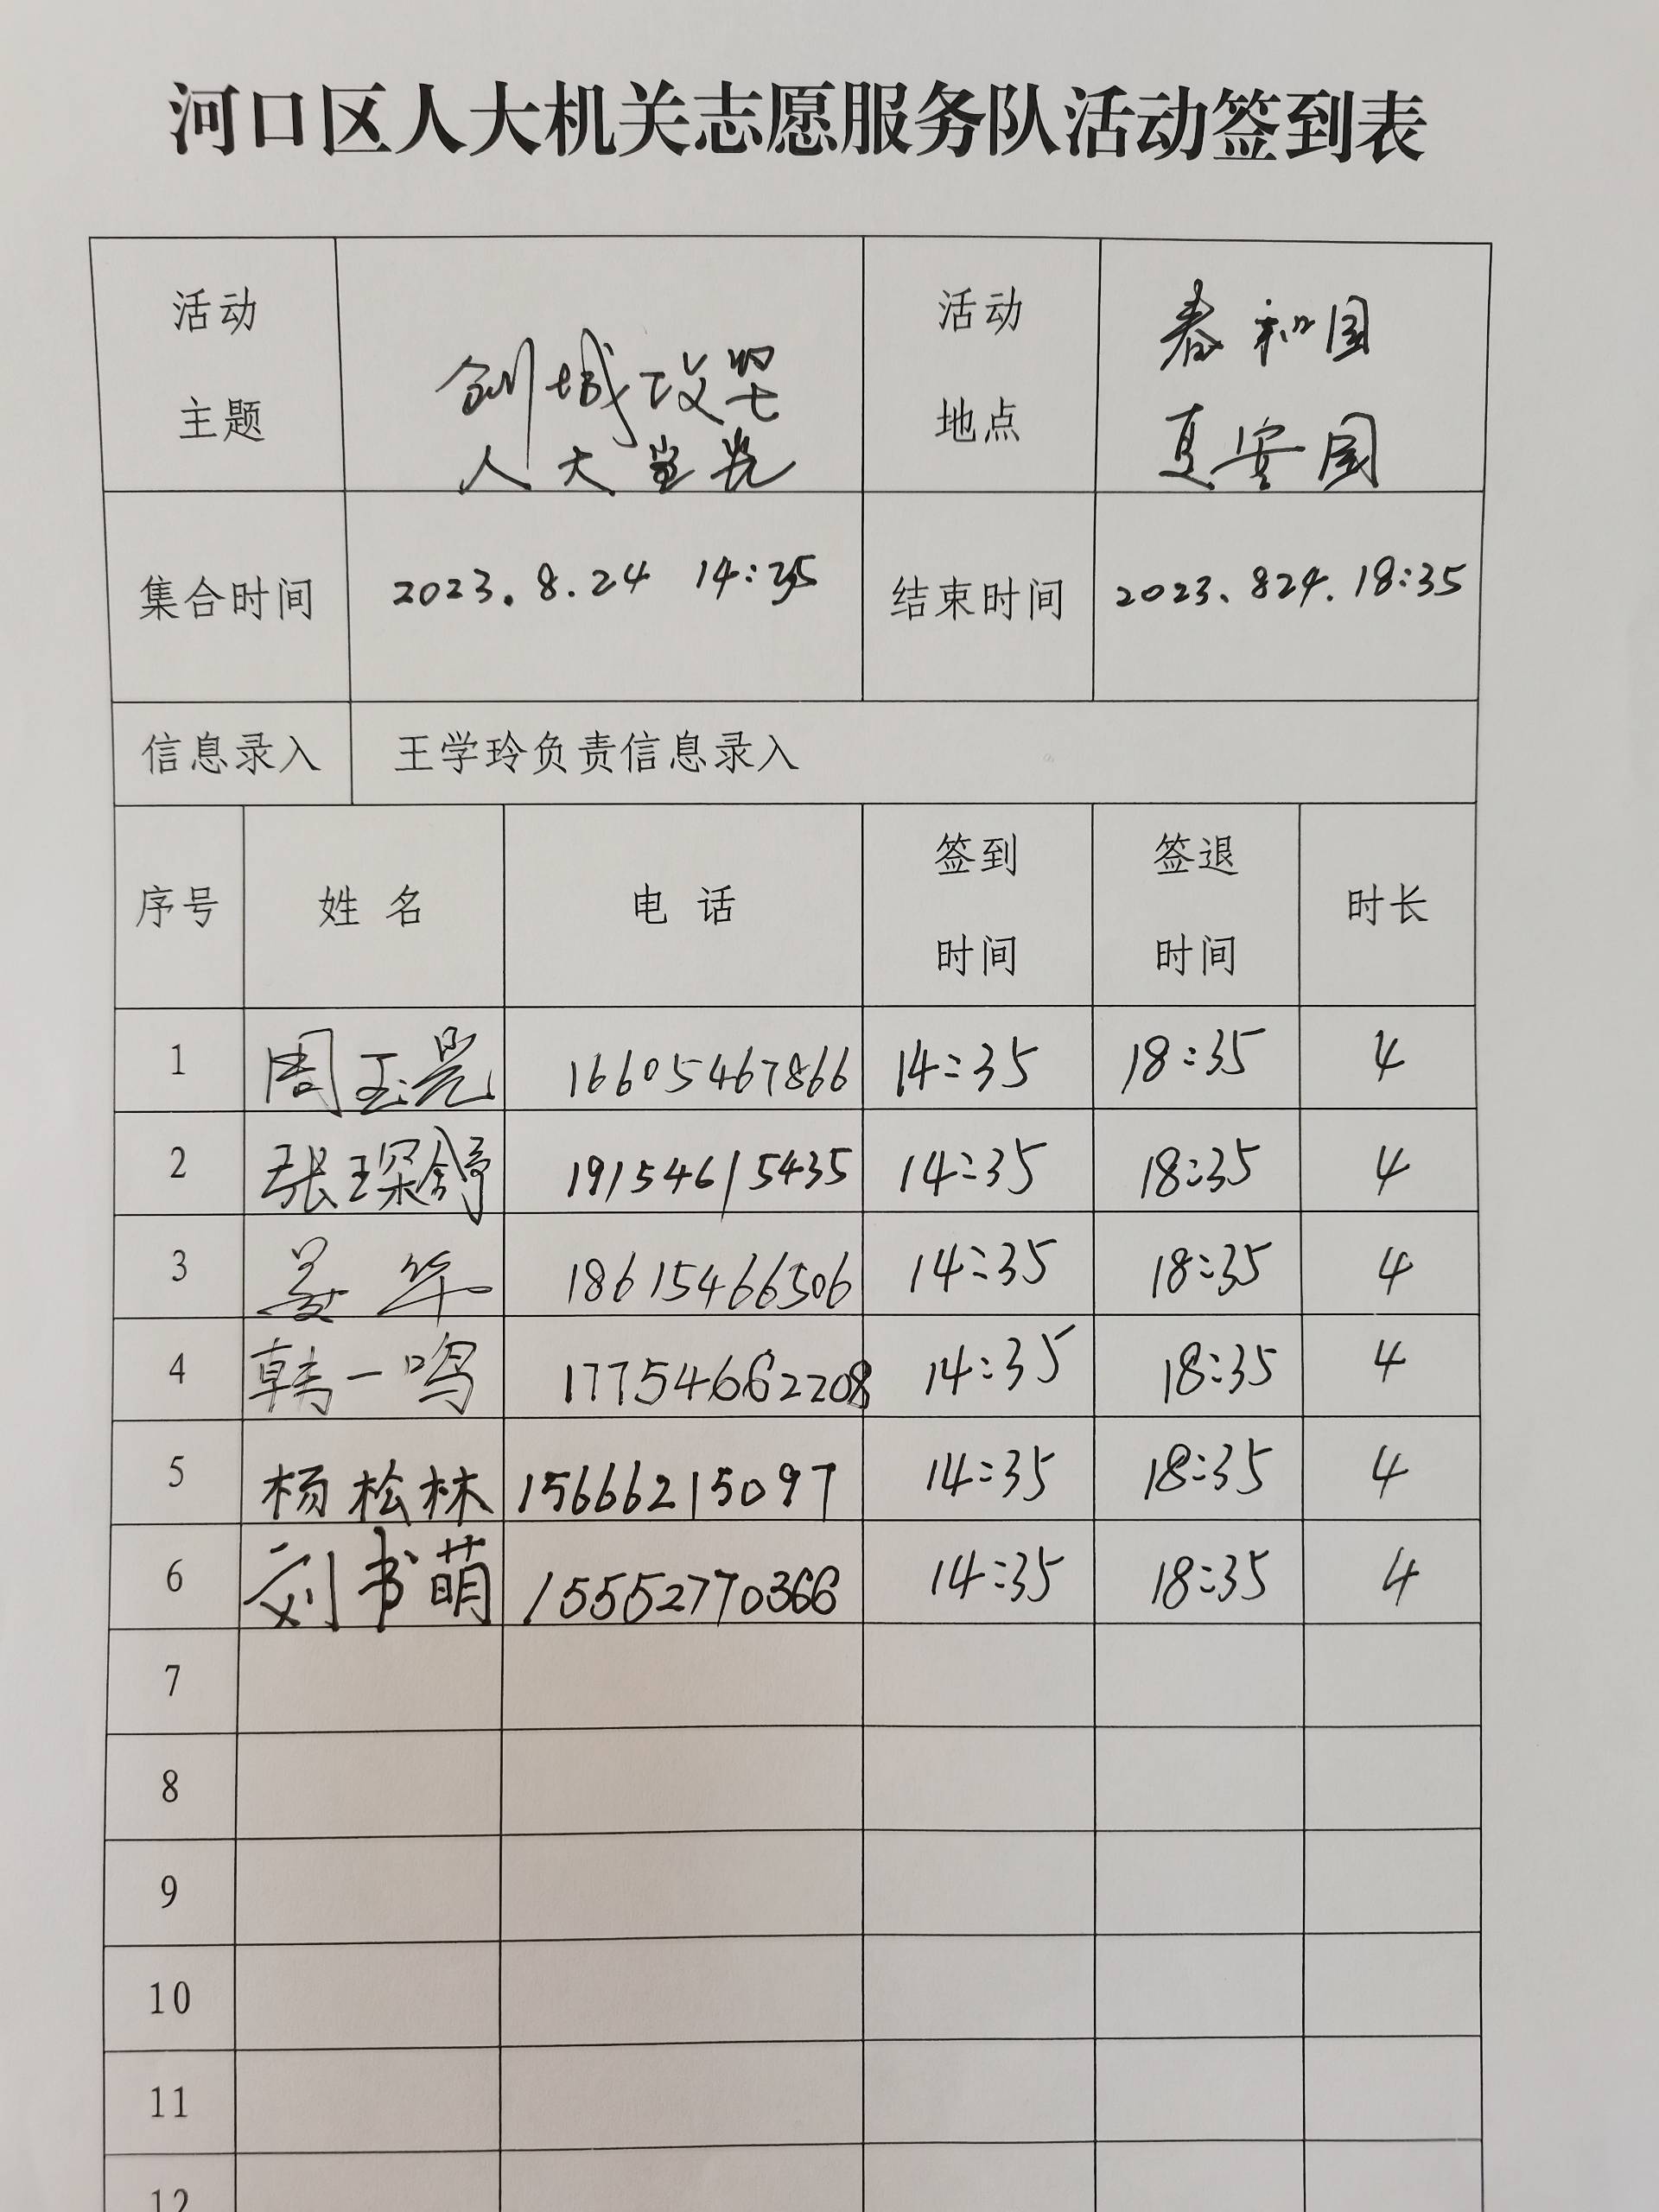 河口区人大机关志愿服务队活动签到表
活动主题 创城攻坚 人大当先 活动地点 春和园 夏安园
集合时间 2023.8.24 14:35 结束时间 2023.824.18:35
信息录入 王学玲负责信息录入
序号 姓名 电话 签到时间 签退时间 时长
1 周玉晃 16605467866 14:35 18:35 4
2 张琛舒 19154615435 14:35 18:35 4
3 姜华 18615466506 14:35 18:35 4
4 韩一鸣 17754662208 14:35 18:35 4
5 杨松林 15666215097 14:35 18:35 4
6 刘书萌 15552770366 14:35 18:35 4
7
8
9
10
11
12